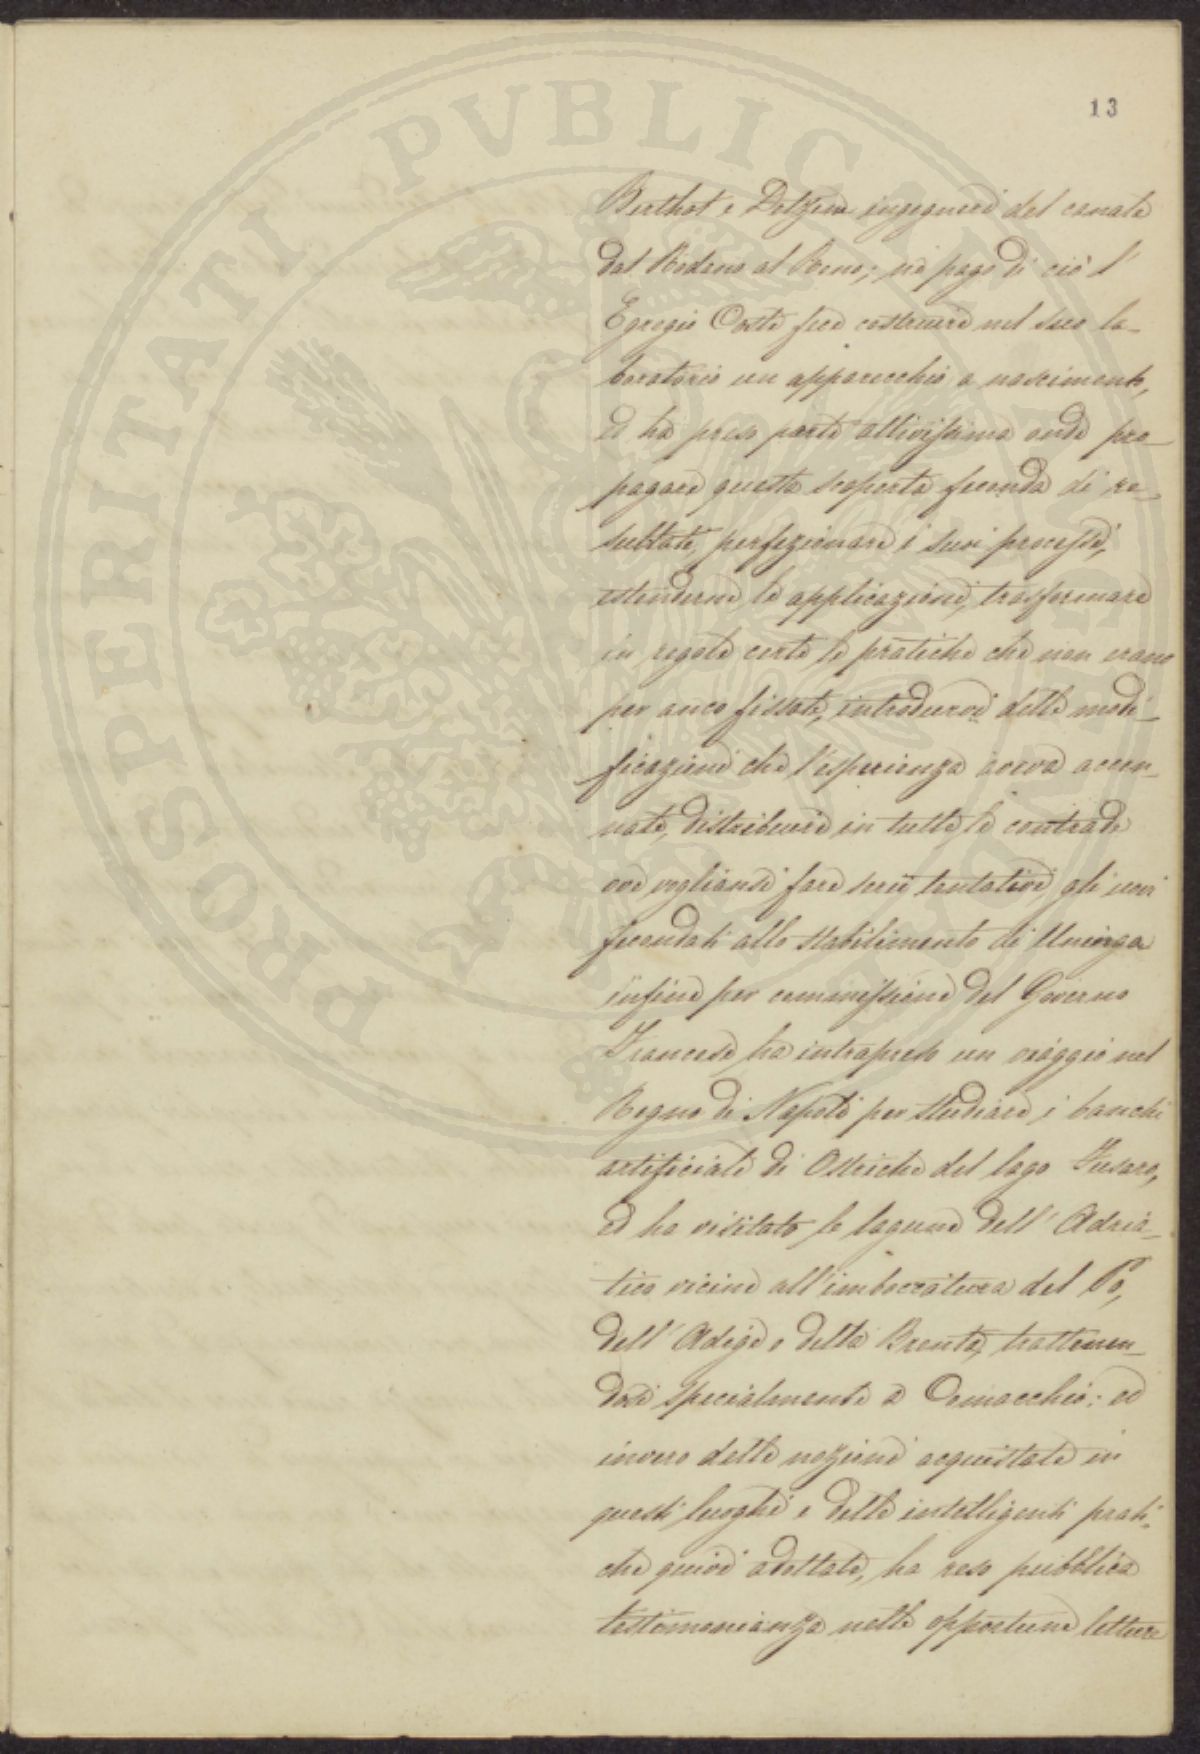 13
Berthot e Detzem ingegneri del canale
dal Rodano al Reno; nè pago di ciò l'
Egregio Coste fece costruire nel suo la-
boratorio un apparecchio a nascimento,
ed ha preso parte attivissima onde pro-
pagare questa scoperta feconda di re-
sultati, perfezionare i suoi processi,
estenderne le applicazioni, trasformare
in regole certe le pratiche che non erano
per anco fissate, introdurvi delle modi-
ficazioni che l'esperienza aveva accen-
nate, distribuire in tutte le contrade
ove vogliansi fare serii tentativi, gli uovi
fecondati allo stabilimento di Uninga
infine per commissione del Governo
Francese ha intrapreso un viaggio nel
Regno di Napoli per studiare i banchi
artificiali di Ostriche del lago Fusaro,
ed ha visitato le lagune dell'Adria-
tico vicine all'imboccatura del Po,
dell'Adige e della Brenta, trattenen-
dosi specialmente a Comacchio: ed
invero delle nozioni acquistate in
questi luoghi e delle intelligenti prati-
che quivi adottate, ha reso pubblica
testimonianza nelle opportune letture
PROSPERITATI PVBLICAE